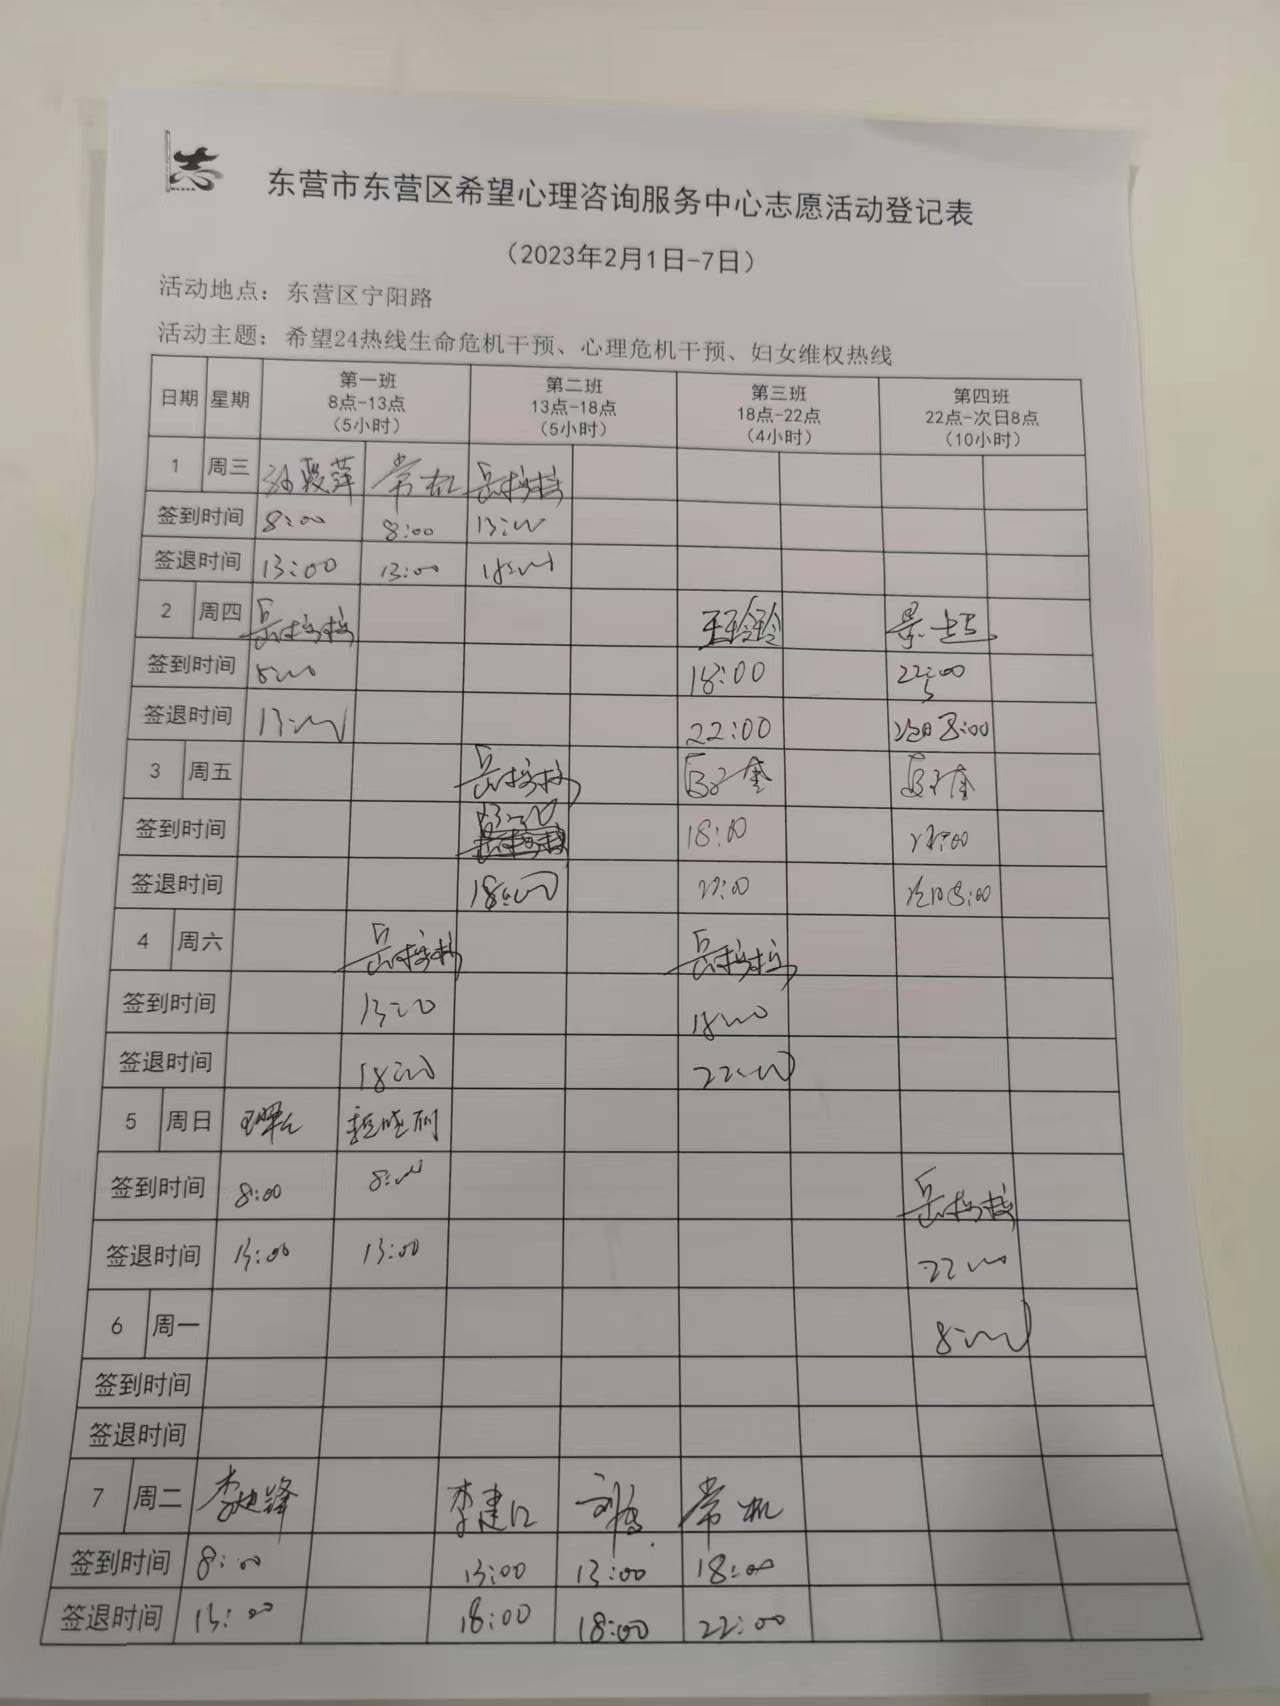 志
东营市东营区希望心理咨询服务中心志愿活动登记表
（2023年2月1日-7日）
活动地点：东营区宁阳路
活动主题：希望24热线生命危机干预、心理危机干预、妇女维权热线
日期 星期 第一班 8点-13点 （5小时） 第二班 13点-18点 （5小时） 第三班 18点-22点 （4小时） 第四班 22点-次日8点 （10小时）
1 周三
签到时间 8:00 8:00 13:00
签退时间 13:00 13:00 18:00
2 周四 王玲玲
签到时间 8:00 18:00 22:00
签退时间 13:00 22:00 次日8:00
3 周五
签到时间 13:00 18:00 22:00
签退时间 18:00 22:00 次日8:00
4 周六
签到时间 13:00 18:00
签退时间 18:00 22:00
5 周日
签到时间 8:00 8:00
签退时间 13:00 13:00 22:00
6 周一 8:00
签到时间
签退时间
7 周二 李建
签到时间 8:00 13:00 13:00 18:00
签退时间 13:00 18:00 18:00 22:00